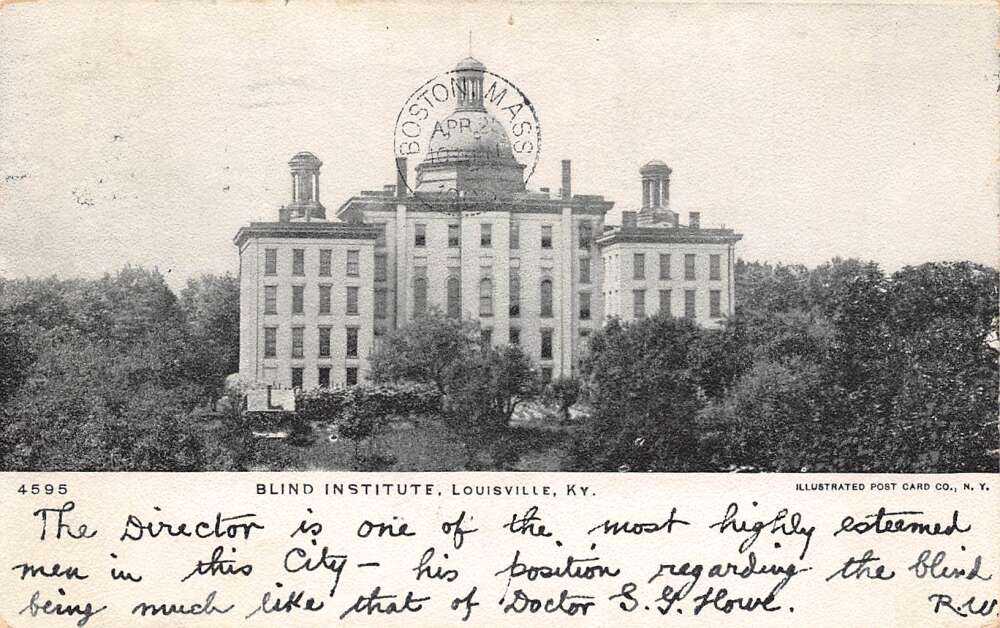 BOSTON, MASS
APR 2
10
4595
BLIND INSTITUTE, LOUISVILLE, KY.
ILLUSTRATED POST CARD CO., N. Y.
The Director is one of the most highly esteemed
men in this City – his position regarding the blind
being much like that of Doctor S. G. Howe.
R.W.